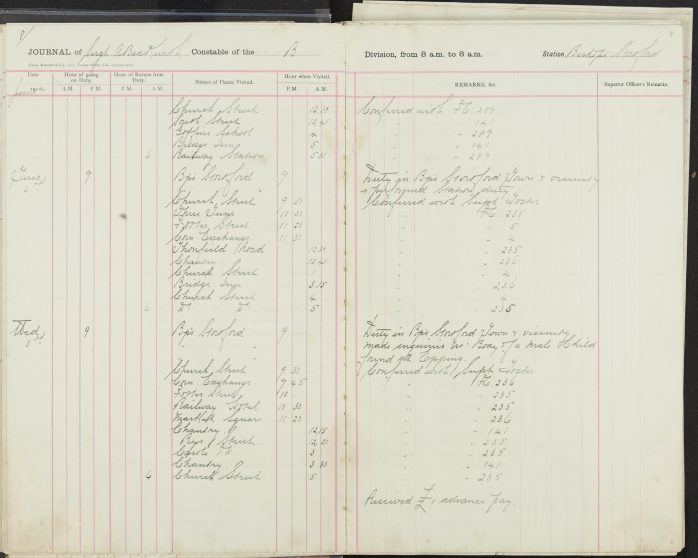 8/
JOURNAL of Sergt A Beckwith Constable of the B Division, from 8 a.m. to 8 a.m. Station Bishops Storford
Date Hour of going on Duty. Hour of Return from Duty. Names of Places Visited. Hour when Visited. REMARKS, &c. Superior Officer's Remarks.
A.M. P.M. P.M. A.M. P.M. A.M.
Church Street 12 30 Conferred with P.C. 289
South Street 12 45 " 141
School 4 " 289
Bridge Inn 5 " 141
6 Railway Station 5 30 " 289
Tues 9 Bps Storford 9 Duty in Bps Storford Town & vicinity
2nd & performed Station duty
Church Street 9 30 Conferred with Supt Foster
Three Tuns 10 30 " P.C. 235
Street " 5
Corn Exchange 11 30 " 4
Thornfield Road 12 30 " 235
Chantry 12 45 " 236
Church Street 1 " 4
Bridge Inn 3.15 " 236
Church Street 4 " 4
6 Do Do 5 " 235
Wed 9 Bps Storford 9 Duty in Bps Storford Town & vicinity
3rd " " made enquiries re Body of a male Child
found at Epping.
Church Street 9 30 Conferred with Supt Foster
Corn Exchange 9 45 " P.C. 236
Street 10 " 235
Railway Hotel 10 30 " 235
Market Square 11 20 " 236
Chantry 12.15 " 141
Rye Street 12.20 " 235
3 " 235
Chantry 3 30 " 141
6 Church Street 5 " 235
Received £1 advance pay.